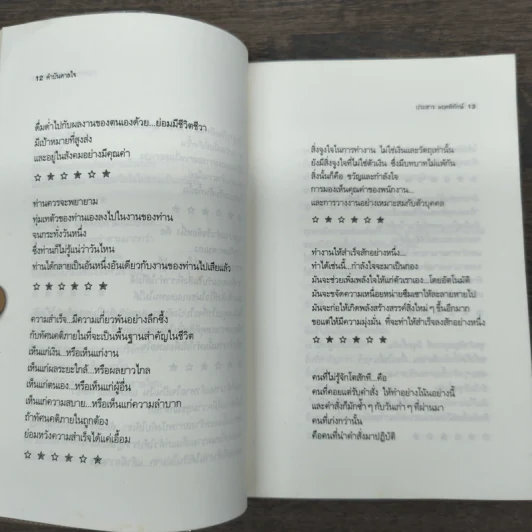 12 คำบันดาลใจ
ดื่มด่ำไปกับผลงานของตนเองด้วย...ย่อมมีชีวิตชีวา
มีเป้าหมายที่สูงส่ง
และอยู่ในสังคมอย่างมีคุณค่า
☆ ☆ ☆ ☆ ☆ ☆
ท่านควรจะพยายาม
ทุ่มเทตัวของท่านเองลงไปในงานของท่าน
จนกระทั่งวันหนึ่ง
ซึ่งท่านก็ไม่รู้แน่ว่าวันไหน
ท่านได้กลายเป็นอันหนึ่งอันเดียวกับงานของท่านไปเสียแล้ว
☆ ☆ ☆ ☆ ☆ ☆
ความสำเร็จ...มีความเกี่ยวพันอย่างลึกซึ้ง
กับทัศนคติภายในที่จะเป็นพื้นฐานสำคัญในชีวิต
เห็นแก่เงิน...หรือเห็นแก่งาน
เห็นแก่ผลระยะใกล้...หรือผลยาวไกล
เห็นแก่ตนเอง...หรือเห็นแก่ผู้อื่น
เห็นแก่ความสบาย...หรือเห็นแก่ความลำบาก
ถ้าทัศนคติภายในถูกต้อง
ย่อมหวังความสำเร็จได้แค่เอื้อม
☆ ☆ ☆ ☆ ☆ ☆
ประสาร มฤคพิทักษ์ 13
สิ่งจูงใจในการทำงาน ไม่ใช่เงินและวัตถุเท่านั้น
ยังมีสิ่งจูงใจที่ไม่ใช่ตัวเงิน ซึ่งมีบทบาทไม่แพ้กัน
สิ่งนั้นก็คือ ขวัญและกำลังใจ
การมองเห็นคุณค่าของพนักงาน...
และการวางงานอย่างเหมาะสมกับตัวบุคคล
☆ ☆ ☆ ☆ ☆ ☆
ทำงานให้สำเร็จสักอย่างหนึ่ง...
ทำได้เช่นนี้...กำลังใจจะมาเป็นกอง
มันจะช่วยเพิ่มพลังใจให้แก่ตัวเราเอง...โดยอัตโนมัติ
มันจะขจัดความเหนื่อยหน่ายซึมเซาให้ละลายหายไป
มันจะก่อให้เกิดพลังสร้างสรรค์สิ่งใหม่ ๆ ขึ้นอีกมาก
ขอแต่ให้มีความมุ่งมั่น ที่จะทำให้สำเร็จลงสักอย่างหนึ่ง
☆ ☆ ☆ ☆ ☆ ☆
คนที่ไม่รู้จักโตสักที...คือ
คนที่คอยแต่รับคำสั่ง ให้ทำอย่างโน้นอย่างนี้
และคำสั่งก็มักซ้ำ ๆ กับวันเก่า ๆ ที่ผ่านมา
คนที่เก่งกว่านั้น
คือคนที่นำคำสั่งมาปฏิบัติ